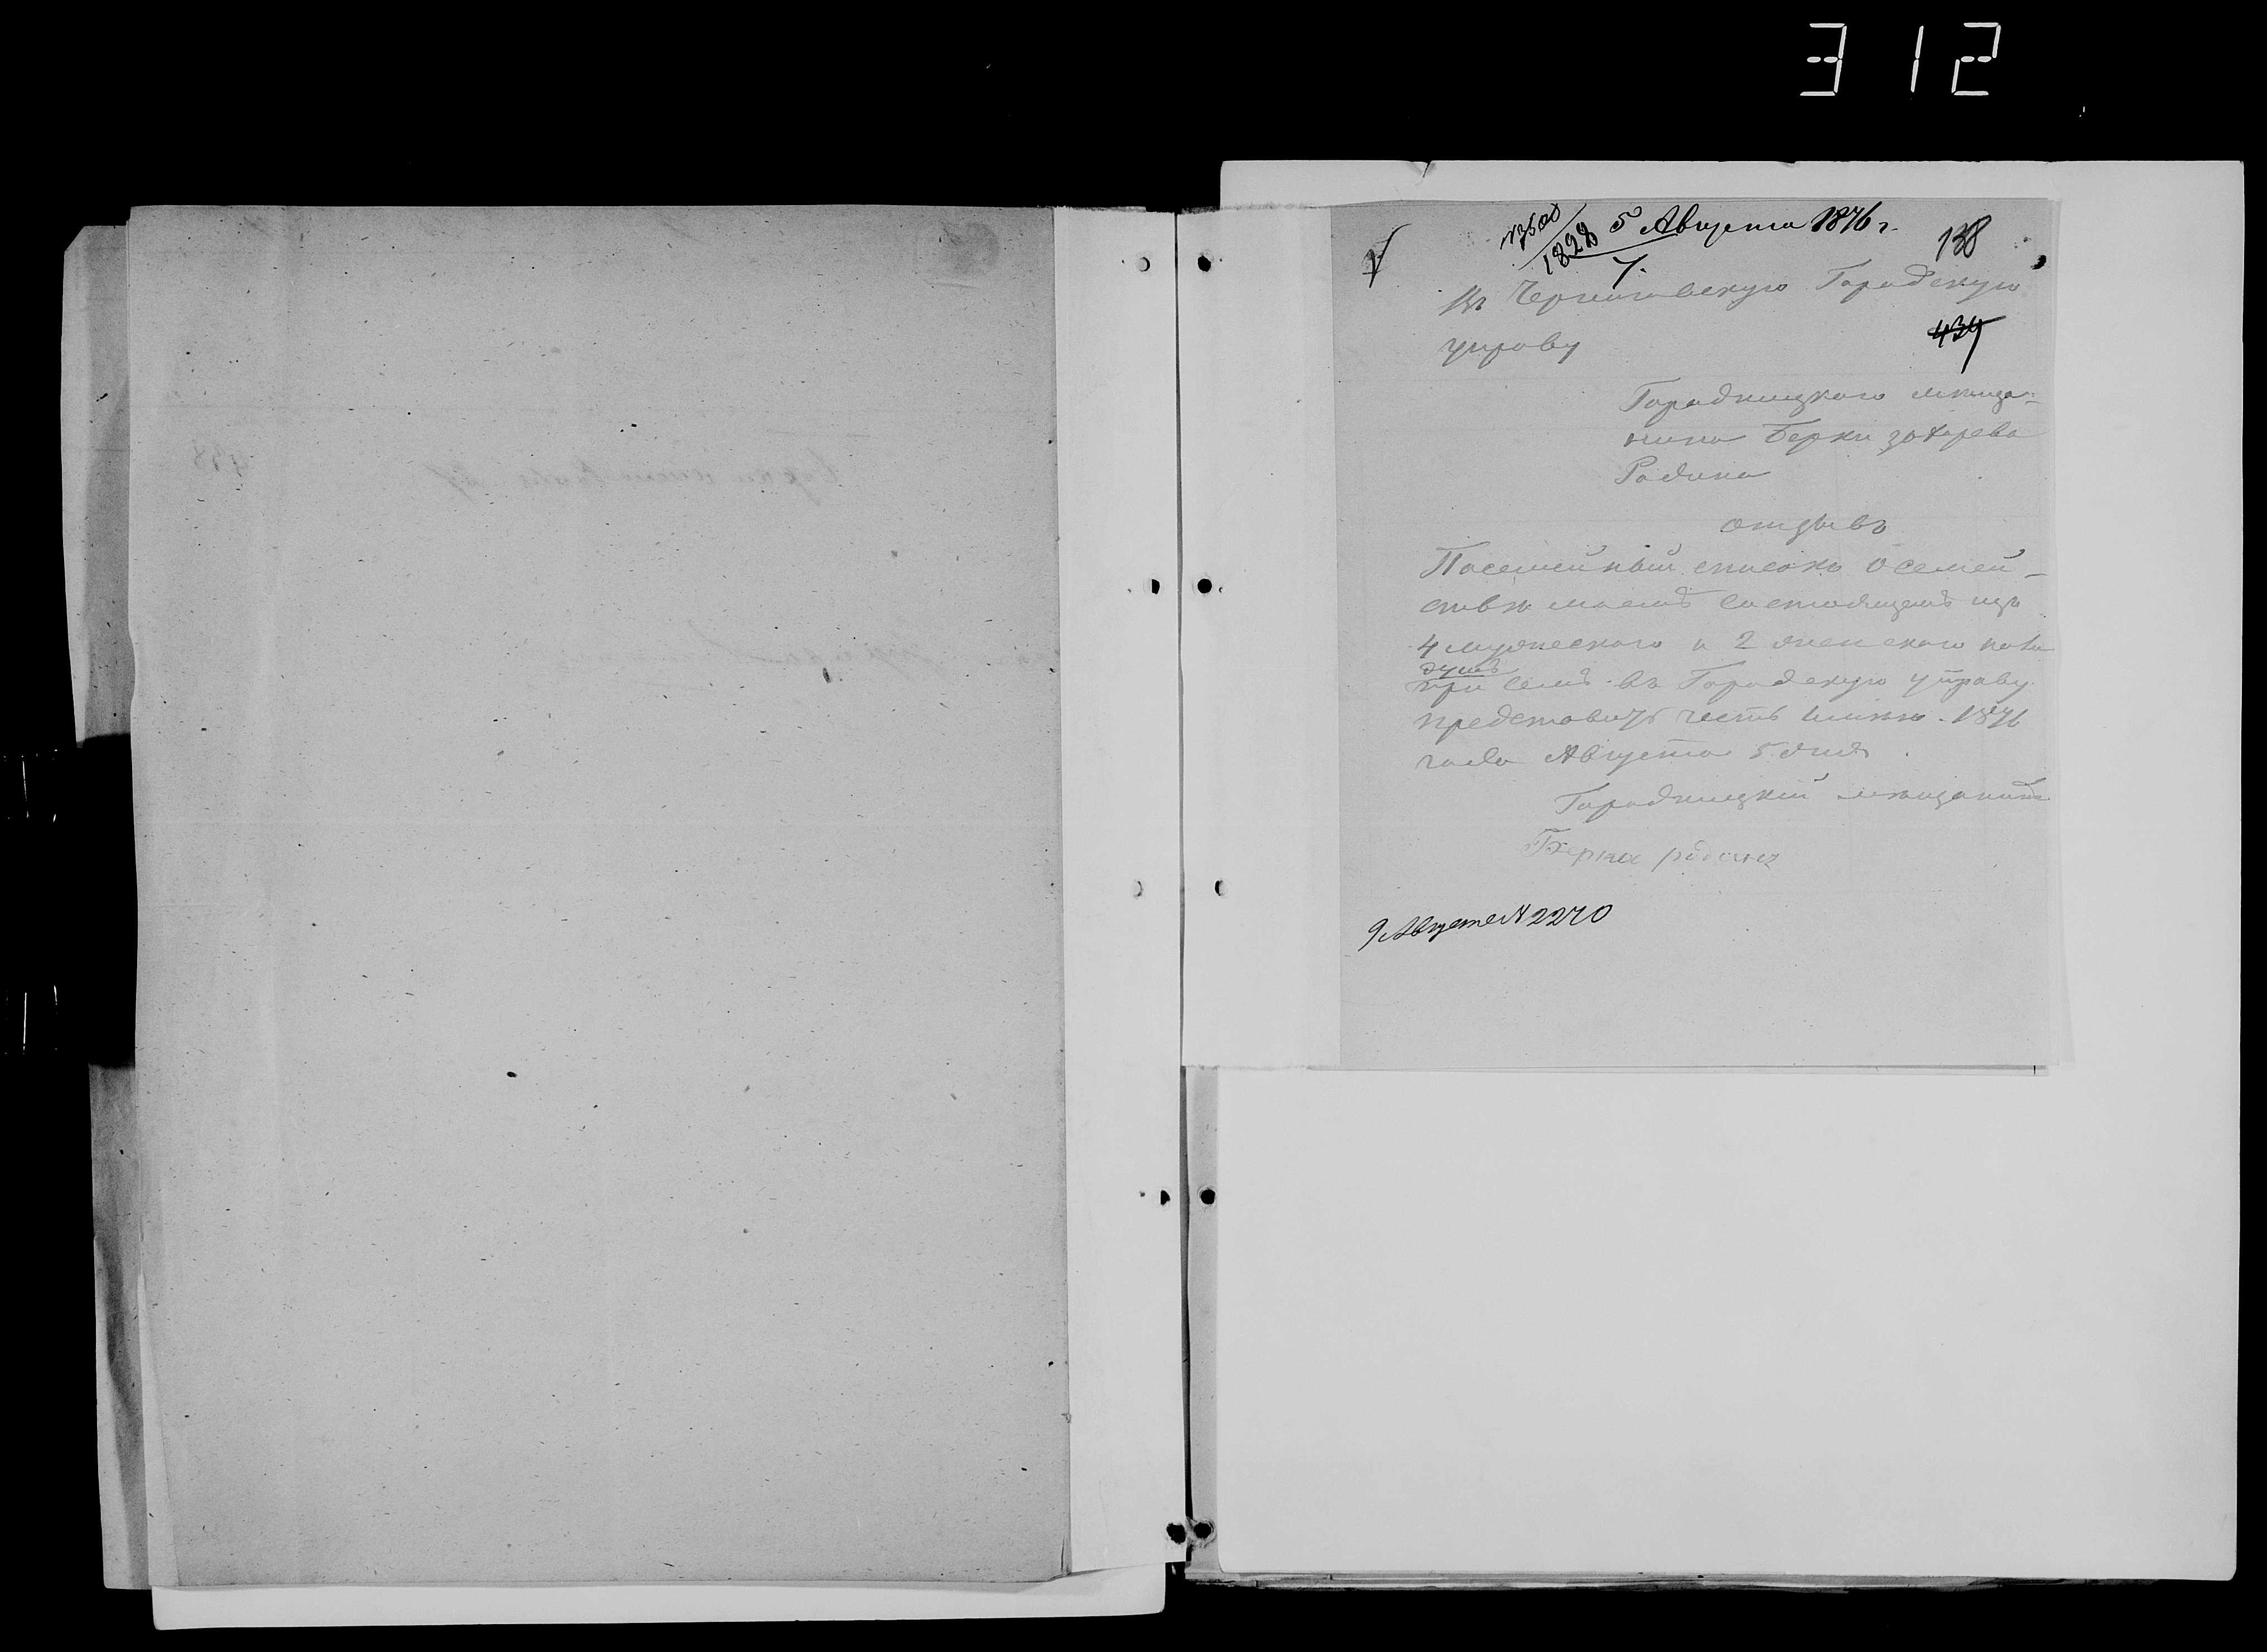 312
1828 5 Августа 1876 г.
7.
138
Въ Черниговскую Городскую
434
управу
Городницкого мѣща-
нина Берки Захарева
Радина
отзывъ
Посемейный списокъ о семей-
ствѣ моемъ состоящемъ изъ
4 мужескаго и 2 женскаго пола
душъ
при семъ въ Городскую управу
представить честь имѣю. 1876
года Августа 5 дня
Городницкій мѣщанинъ
Берка
9 Августа № 2270